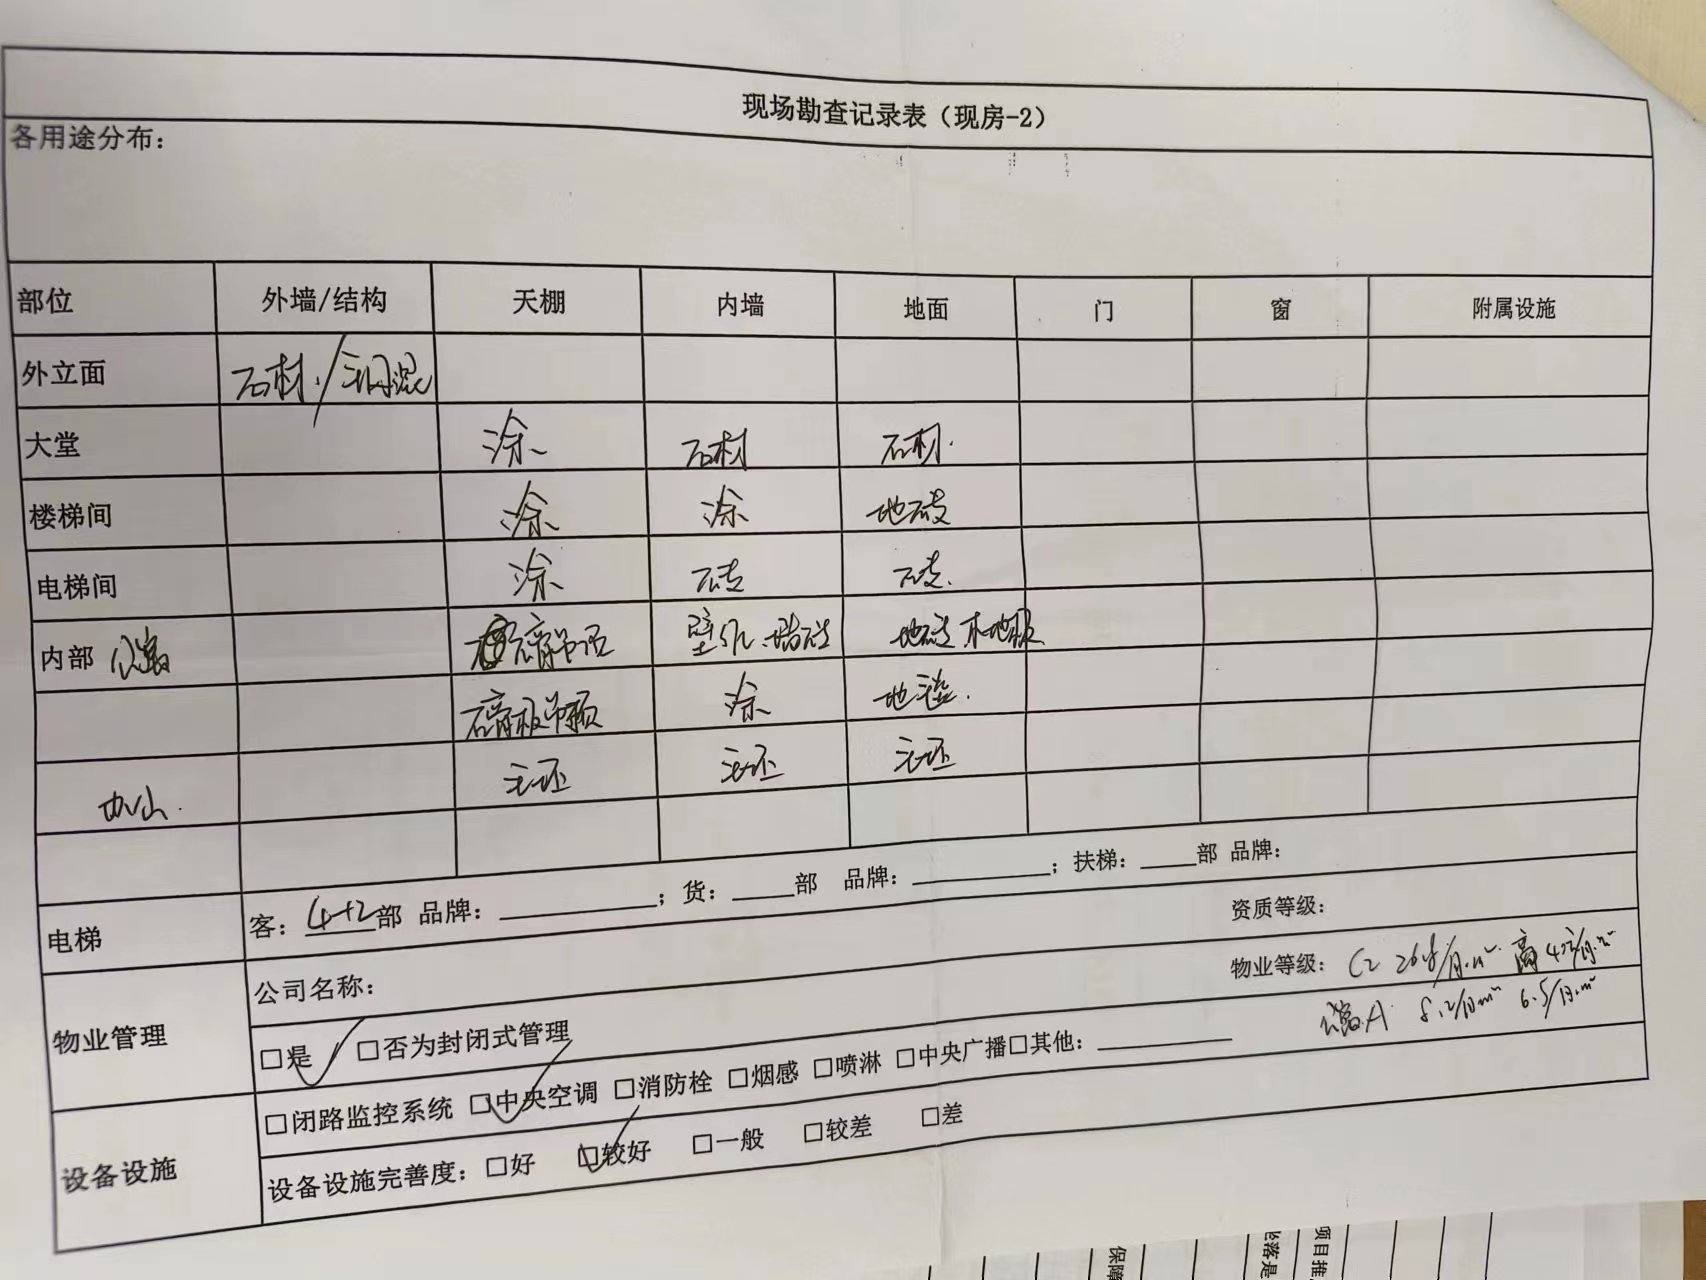 现场勘查记录表（现房-2）
各用途分布：
部位 外墙/结构 天棚 内墙 地面 门 窗 附属设施
外立面 石材/
大堂 涂 石材 石材.
楼梯间 涂 涂 地砖
电梯间 涂 砖 砖.
内部 公寓 石膏吊顶 壁纸、墙砖 地砖 木地板
石膏板吊顶 涂 地毯.
办公. 毛坯 毛坯 毛坯
电梯 客：4+2部 品牌：＿＿；货：＿＿部 品牌：＿＿；扶梯：＿＿部 品牌：
物业管理 公司名称： 资质等级：
□是 □否为封闭式管理 物业等级： C2
公寓A 6.5/月.m²
设备设施 □闭路监控系统 □中央空调 □消防栓 □烟感 □喷淋 □中央广播□其他：＿＿
设备设施完善度：□好 □较好 □一般 □较差 □差
保障
坐落是
项目推